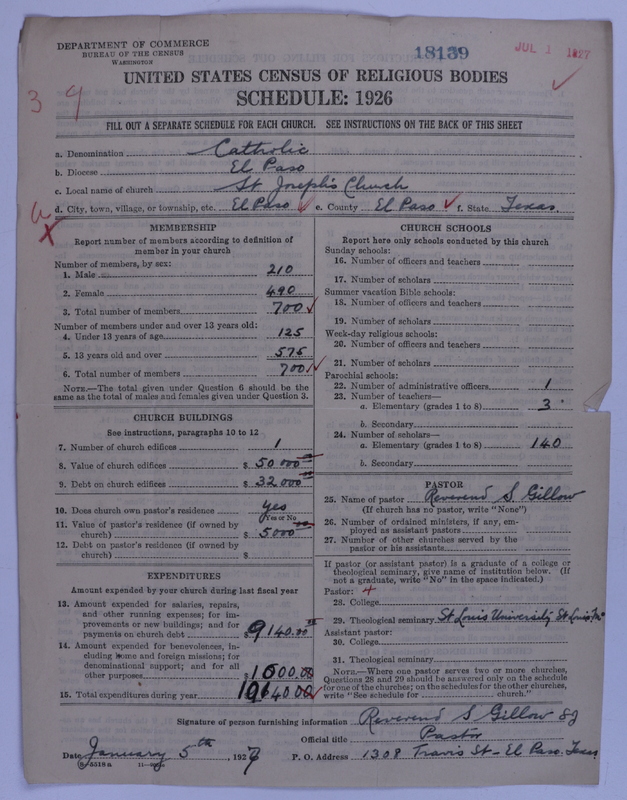 DEPARTMENT OF COMMERCE
BUREAU OF THE CENSUS
WASHINGTON
18139
JUL 1 1927
UNITED STATES CENSUS OF RELIGIOUS BODIES
SCHEDULE: 1926
3 9
FILL OUT A SEPARATE SCHEDULE FOR EACH CHURCH. SEE INSTRUCTIONS ON THE BACK OF THIS SHEET
a. Denomination Catholic
b. Diocese El Paso
c. Local name of church St Joseph's Church
d. City, town, village, or township, etc. El Paso e. County El Paso f. State Texas.
MEMBERSHIP
Report number of members according to definition of
member in your church
Number of members, by sex:
1. Male 210
2. Female 490
3. Total number of members 700
Number of members under and over 13 years old:
4. Under 13 years of age 125
5. 13 years old and over 575
6. Total number of members 700
NOTE.—The total given under Question 6 should be the
same as the total of males and females given under Question 3.
CHURCH BUILDINGS
See instructions, paragraphs 10 to 12
7. Number of church edifices 1
8. Value of church edifices $ 50 000
9. Debt on church edifices $ 32 000
10. Does church own pastor's residence yes
Yes or No
11. Value of pastor's residence (if owned by
church) $ 5000
12. Debt on pastor's residence (if owned by
church) $
EXPENDITURES
Amount expended by your church during last fiscal year
13. Amount expended for salaries, repairs,
and other running expenses; for im-
provements or new buildings; and for
payments on church debt $ 9140.00
14. Amount expended for benevolences, in-
cluding home and foreign missions; for
denominational support; and for all
other purposes
15. Total expenditures during year
CHURCH SCHOOLS
Report here only schools conducted by this church
Sunday schools:
16. Number of officers and teachers
17. Number of scholars
Summer vacation Bible schools:
18. Number of officers and teachers
19. Number of scholars
Week-day religious schools:
20. Number of officers and teachers
21. Number of scholars
Parochial schools:
22. Number of administrative officers 1
23. Number of teachers—
a. Elementary (grades 1 to 8) 3
b. Secondary
24. Number of scholars—
a. Elementary (grades 1 to 8) 140
b. Secondary
PASTOR
25. Name of pastor Reverend S. Gillow
(If church has no pastor, write "None")
26. Number of ordained ministers, if any, em-
ployed as assistant pastors
27. Number of other churches served by the
pastor or his assistants
If pastor (or assistant pastor) is a graduate of a college or
theological seminary, give name of institution below. (If
not a graduate, write "No" in the space indicated.)
Pastor:
28. College
29. Theological seminary St Louis University St Louis Mo
Assistant pastor:
30. College
31. Theological seminary
NOTE.—Where one pastor serves two or more churches,
Questions 28 and 29 should be answered only on the schedule
for one of the churches; on the schedules for the other churches,
write "See schedule for church."
Signature of person furnishing information Reverend S Gillow SJ
Official title Pastor
Date January 5th, 1927 P. O. Address 1308 Travis St - El Paso. Texas
8-5518a